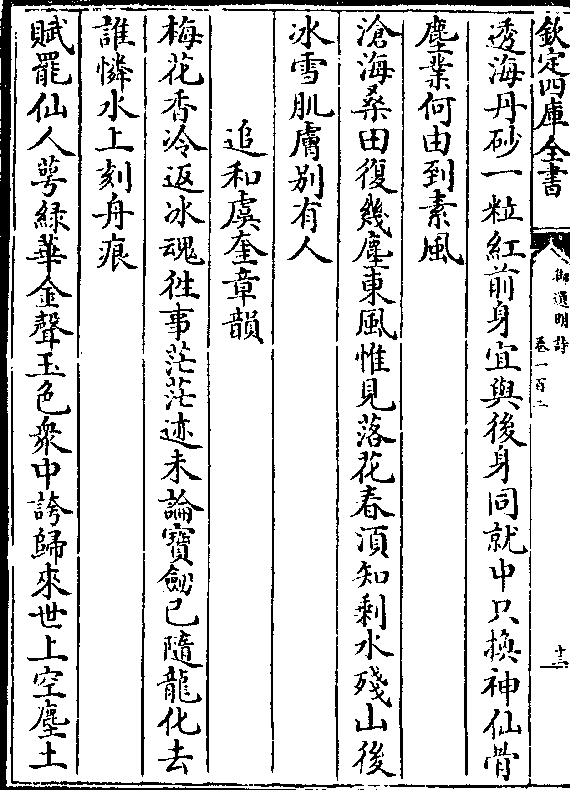 欽定四庫全書
御選明詩
卷一百二
十三
透海丹砂一粒紅前身宜與後身同就中只換神仙骨
塵業何由到素風
滄海桑田復幾塵東風惟見落花春湏知剩水殘山後
冰雪肌膚别有人
追和虞奎章韻
梅花香冷返冰魂徃事茫茫迹未論寶劒已隨龍化去
誰憐水上刻舟痕
賦罷仙人萼緑華金聲玉色衆中誇歸來世上空塵土